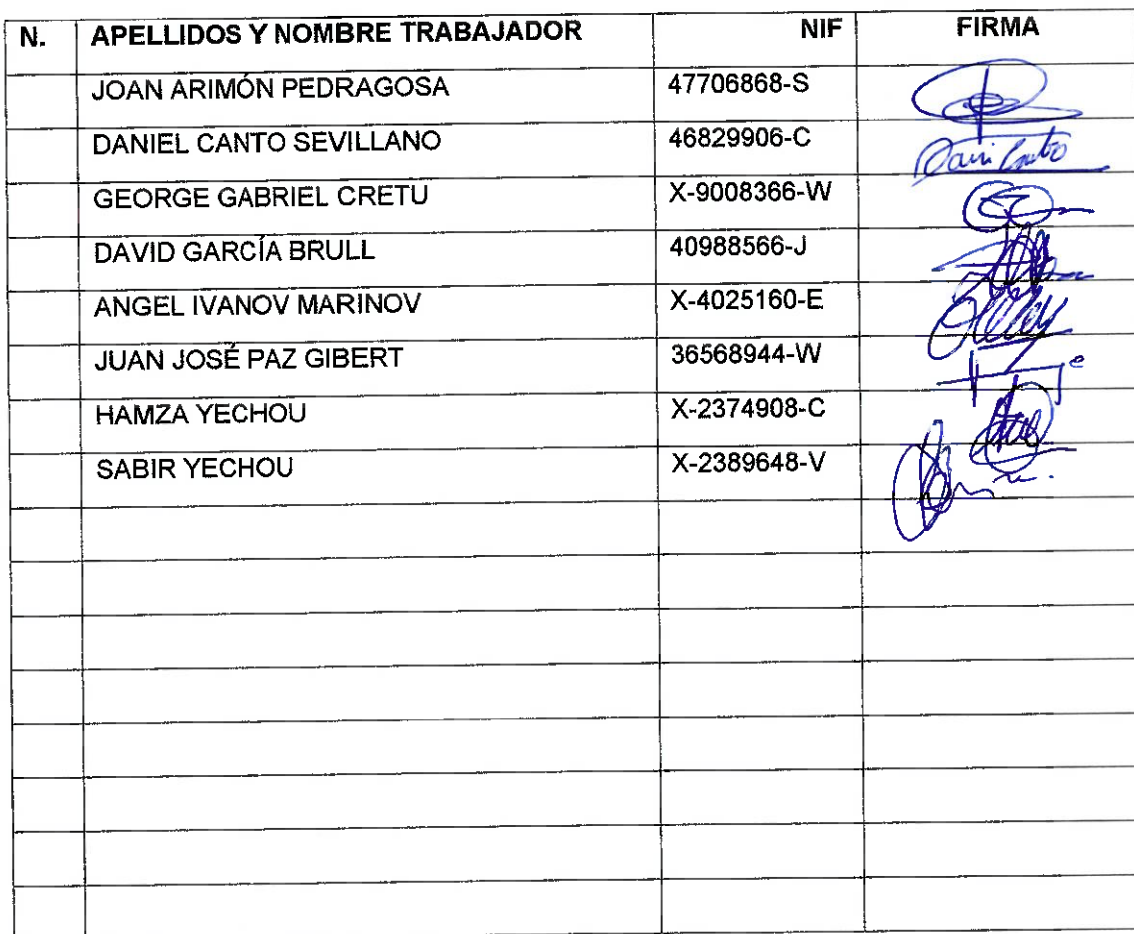 N. APELLIDOS Y NOMBRE TRABAJADOR NIF FIRMA
JOAN ARIMÓN PEDRAGOSA 47706868-S
DANIEL CANTO SEVILLANO 46829906-C
GEORGE GABRIEL CRETU X-9008366-W
DAVID GARCÍA BRULL 40988566-J
ANGEL IVANOV MARINOV X-4025160-E
JUAN JOSÉ PAZ GIBERT 36568944-W
HAMZA YECHOU X-2374908-C
SABIR YECHOU X-2389648-V